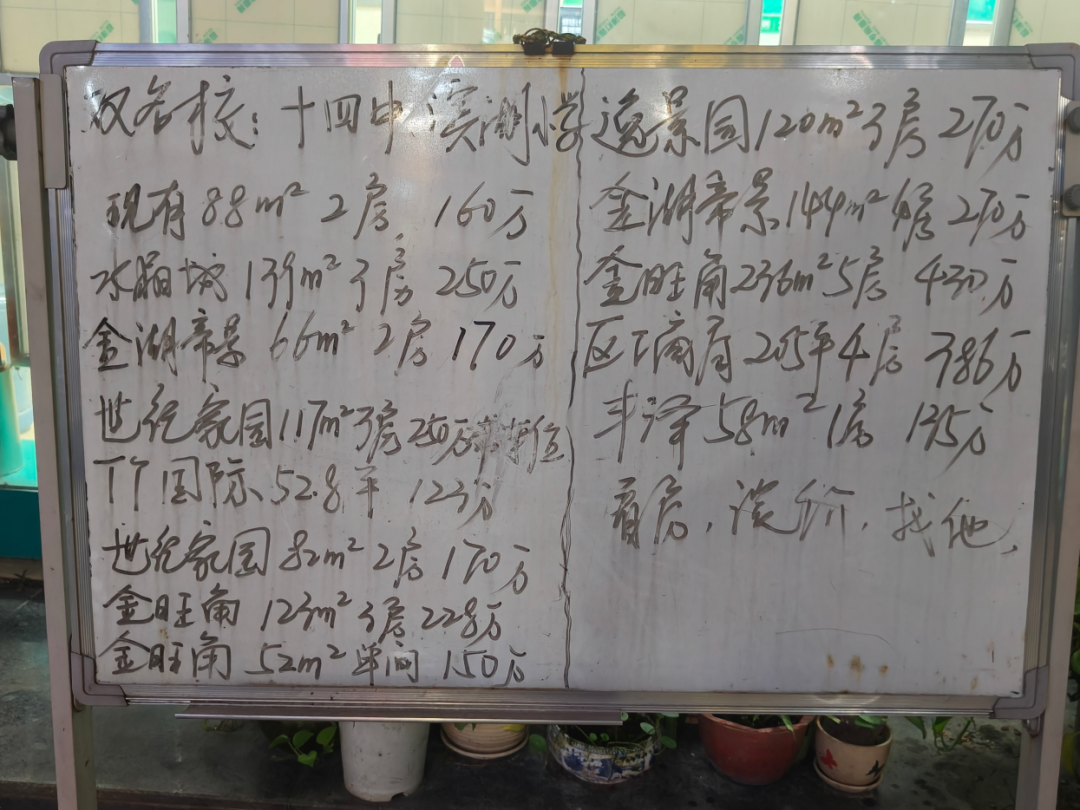 双名校：十四中 滨湖学
现有 88m² 2房, 160万
水晶城 139m² 3房 250万
金湖帝景 66m² 2房 170万
世纪家园 117m² 3房 250万 带
国际 52.8平 123万
世纪家园 82m² 2房 170万
金旺角 123m² 3房 228万
金旺角 52m² 单间 150万
逸景园 120m² 3房 270万
金湖帝景 144m² 4房 270万
金旺角 236m² 5房 430万
205平 4房 386万
丰泽 58m² 1房 135万
看房, 谈价, 找他,